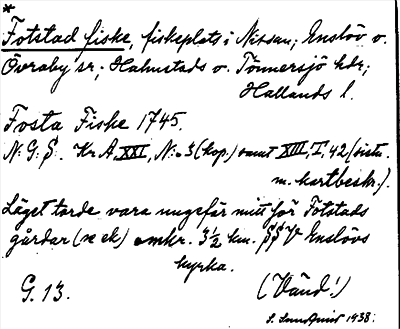 *
Fotstad fiske, fiskeplats i Nissan; Enslöv o.
Övraby sr; Halmstads o. Tönnersjö hdr;
Hallands l.
Fosta Fiske 1745.
N: G: S. Kr. A. XXI, N:o 3 (kop.) samt XIII, I, 42 (sista
m. kartbeskr.).
Läget torde vara ungefär mitt för Fotstads
gårdar (se ek) omkr. 3½ km. SSV Enslövs
kyrka.
G. 13. (Vänd!)
S. Sundqvist 1938.